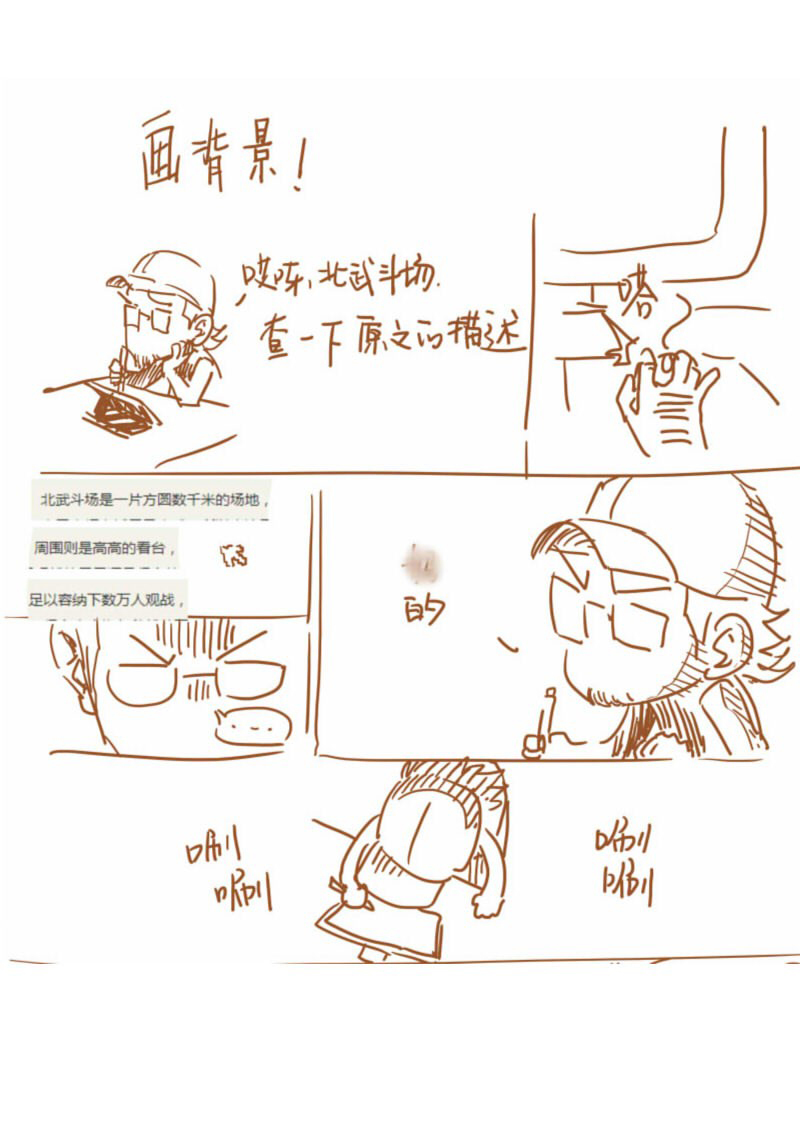 画背景！
哎哟，北武斗场.
查一下原文的描述
嗒
北武斗场是一片方圆数千米的场地，
周围则是高高的看台，
足以容纳下数万人观战，
的
唰
唰
唰
唰